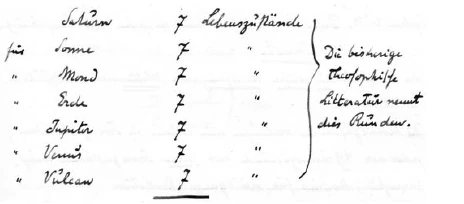 Saturn 7 Lebenszustände
für Sonne 7 "
" Mond 7 "
" Erde 7 "
" Jupiter 7 "
" Venus 7 "
" Vulcan 7 "
Die bisherige
theosophische
Litteratur nennt
dies Runden.